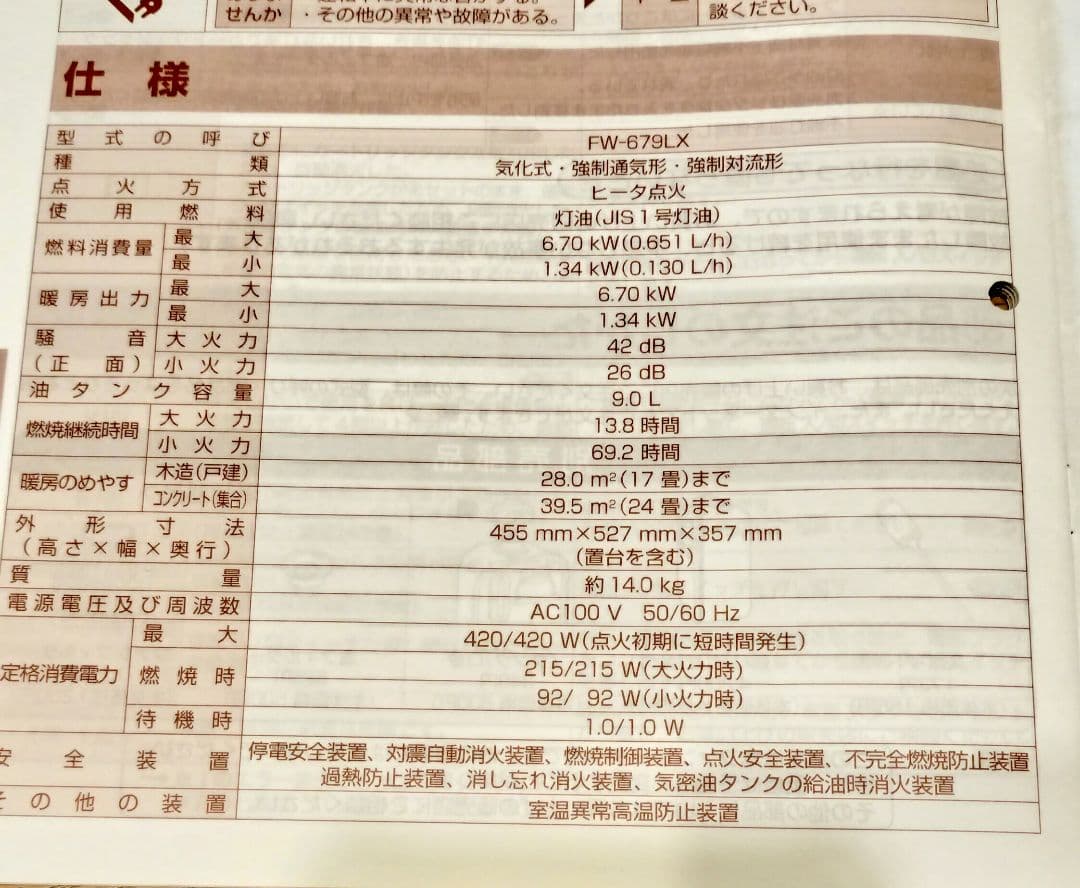 せんか
・その他の異常や故障がある。
談ください。
仕様
型式の呼び FW-679LX
種類 気化式・強制通気形・強制対流形
点火方式 ヒータ点火
使用燃料 灯油(JIS1号灯油)
燃料消費量 最大 6.70 kW(0.651 L/h)
最小 1.34 kW(0.130 L/h)
暖房出力 最大 6.70 kW
最小 1.34 kW
騒音(正面) 大火力 42 dB
小火力 26 dB
油タンク容量 9.0 L
燃焼継続時間 大火力 13.8 時間
小火力 69.2 時間
暖房のめやす 木造(戸建) 28.0 m²(17 畳)まで
コンクリート(集合) 39.5 m²(24 畳)まで
外形寸法 455 mm×527 mm×357 mm
(高さ×幅×奥行) (置台を含む)
質量 約14.0 kg
電源電圧及び周波数 AC100 V 50/60 Hz
定格消費電力 最大 420/420 W(点火初期に短時間発生)
燃焼時 215/215 W(大火力時)
92/ 92 W(小火力時)
待機時 1.0/1.0 W
安全装置 停電安全装置、対震自動消火装置、燃焼制御装置、点火安全装置、不完全燃焼防止装置
過熱防止装置、消し忘れ消火装置、気密油タンクの給油時消火装置
その他の装置 室温異常高温防止装置